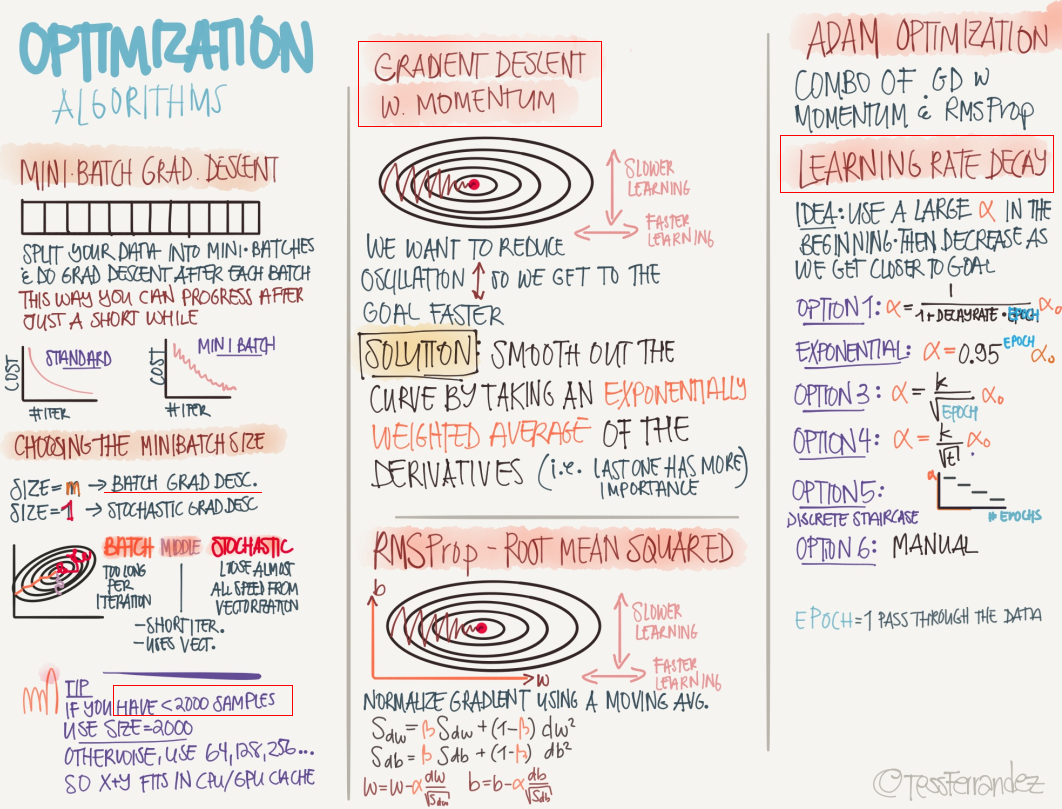 OPTIMIZATION
ALGORITHMS
MINI-BATCH GRAD. DESCENT
SPLIT YOUR DATA INTO MINI-BATCHES
& DO GRAD DESCENT AFTER EACH BATCH
THIS WAY YOU CAN PROGRESS AFTER
JUST A SHORT WHILE
COST
STANDARD
# ITER
COST
MINI BATCH
# ITER
CHOOSING THE MINIBATCH SIZE
SIZE = m → BATCH GRAD DESC.
SIZE = 1 → STOCHASTIC GRAD DESC
BATCH MIDDLE STOCHASTIC
TOO LONG
PER
ITERATION
LOOSE ALMOST
ALL SPEED FROM
VECTORIZATION
-SHORT ITER.
-USES VECT.
TIP
IF YOU HAVE < 2000 SAMPLES
USE SIZE=2000
OTHERWISE, USE 64, 128, 256...
SO X+Y FITS IN CPU/GPU CACHE
GRADIENT DESCENT
W. MOMENTUM
SLOWER
LEARNING
FASTER
LEARNING
WE WANT TO REDUCE
OSCILLATION ↕ SO WE GET TO THE
GOAL FASTER
SOLUTION: SMOOTH OUT THE
CURVE BY TAKING AN EXPONENTIALLY
WEIGHTED AVERAGE OF THE
DERIVATIVES (i.e. LAST ONE HAS MORE)
IMPORTANCE
RMSProp - ROOT MEAN SQUARED
b
SLOWER
LEARNING
FASTER
LEARNING
w
NORMALIZE GRADIENT USING A MOVING AVG.
Sdw = β Sdw + (1-β) dw²
Sdb = β Sdb + (1-β) db²
w=w-α dw/√Sdw b=b-α db/√Sdb
ADAM OPTIMIZATION
COMBO OF GD W
MOMENTUM & RMSProp
LEARNING RATE DECAY
IDEA: USE A LARGE α IN THE
BEGINNING. THEN DECREASE AS
WE GET CLOSER TO GOAL
OPTION 1: α = 1/(1+DECAYRATE·EPOCH) α₀
EXPONENTIAL: α = 0.95^EPOCH α₀
OPTION 3: α = k/√EPOCH α₀
OPTION 4: α = k/√t α₀
OPTION 5:
DISCRETE STAIRCASE
α
# EPOCHS
OPTION 6: MANUAL
EPOCH = 1 PASS THROUGH THE DATA
©TessFerrandez